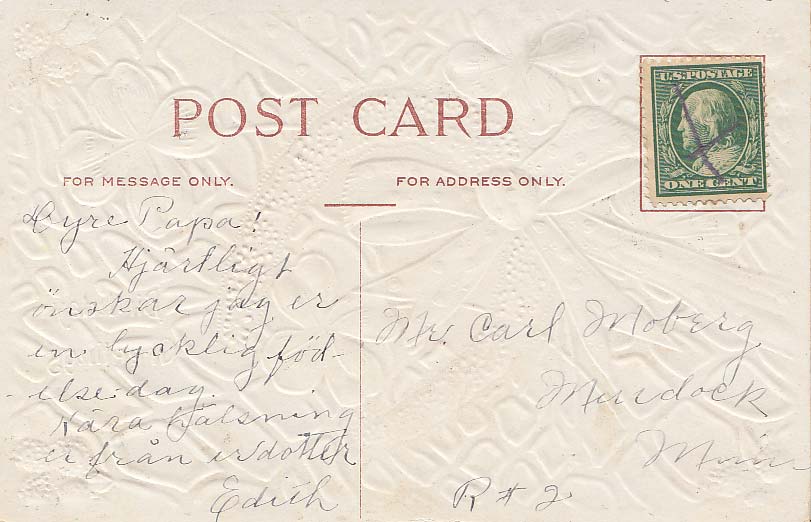 POST CARD
U.S. POSTAGE
ONE CENT
FOR MESSAGE ONLY.
FOR ADDRESS ONLY.
Dyre Papa!
Hjärtligt
önskar jag er
en lycklig föd-
elsedag.
Kära hälsning
er från er dotter
Edith
Mr. Carl Moberg
Murdock
Minn
R # 2